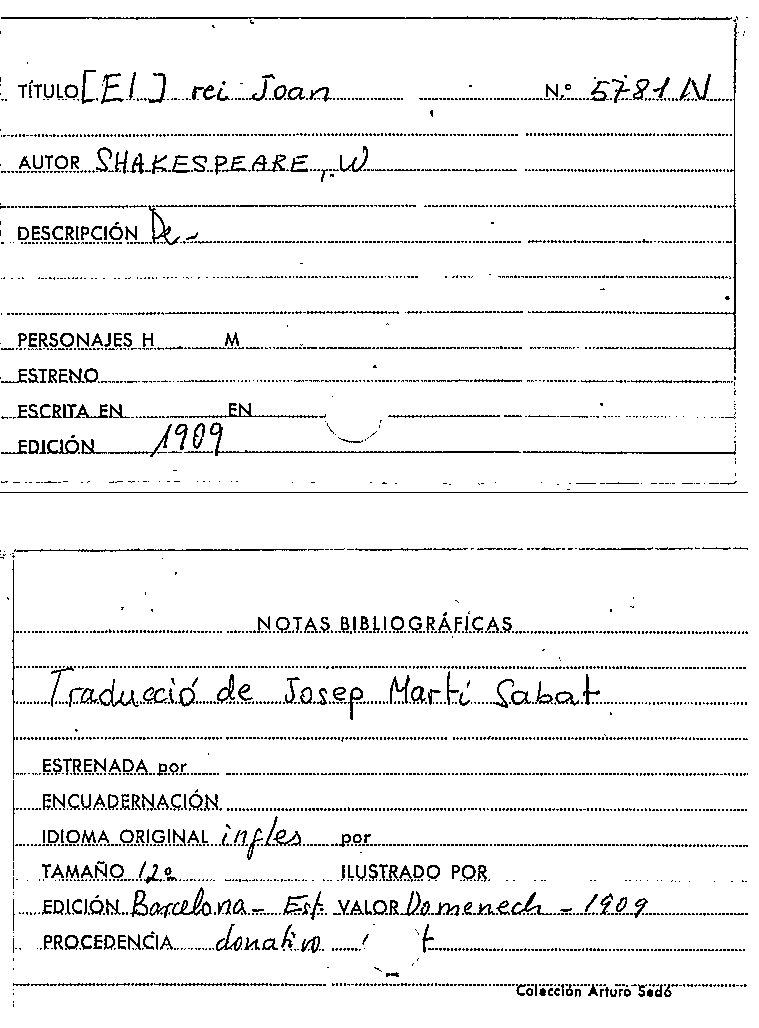 TÍTULO [El] rei Joan N.º 5781 N
AUTOR SHAKESPEARE, W
DESCRIPCIÓN De-
PERSONAJES H M
ESTRENO
ESCRITA EN EN
EDICIÓN 1909
NOTAS BIBLIOGRÁFICAS
Traducció de Josep Martí Sabat
ESTRENADA por
ENCUADERNACIÓN
IDIOMA ORIGINAL ingles por
TAMAÑO 12º ILUSTRADO POR
EDICIÓN Barcelona - Est. VALOR Domenech - 1909
PROCEDENCIA donativo
Colección Arturo Sedó